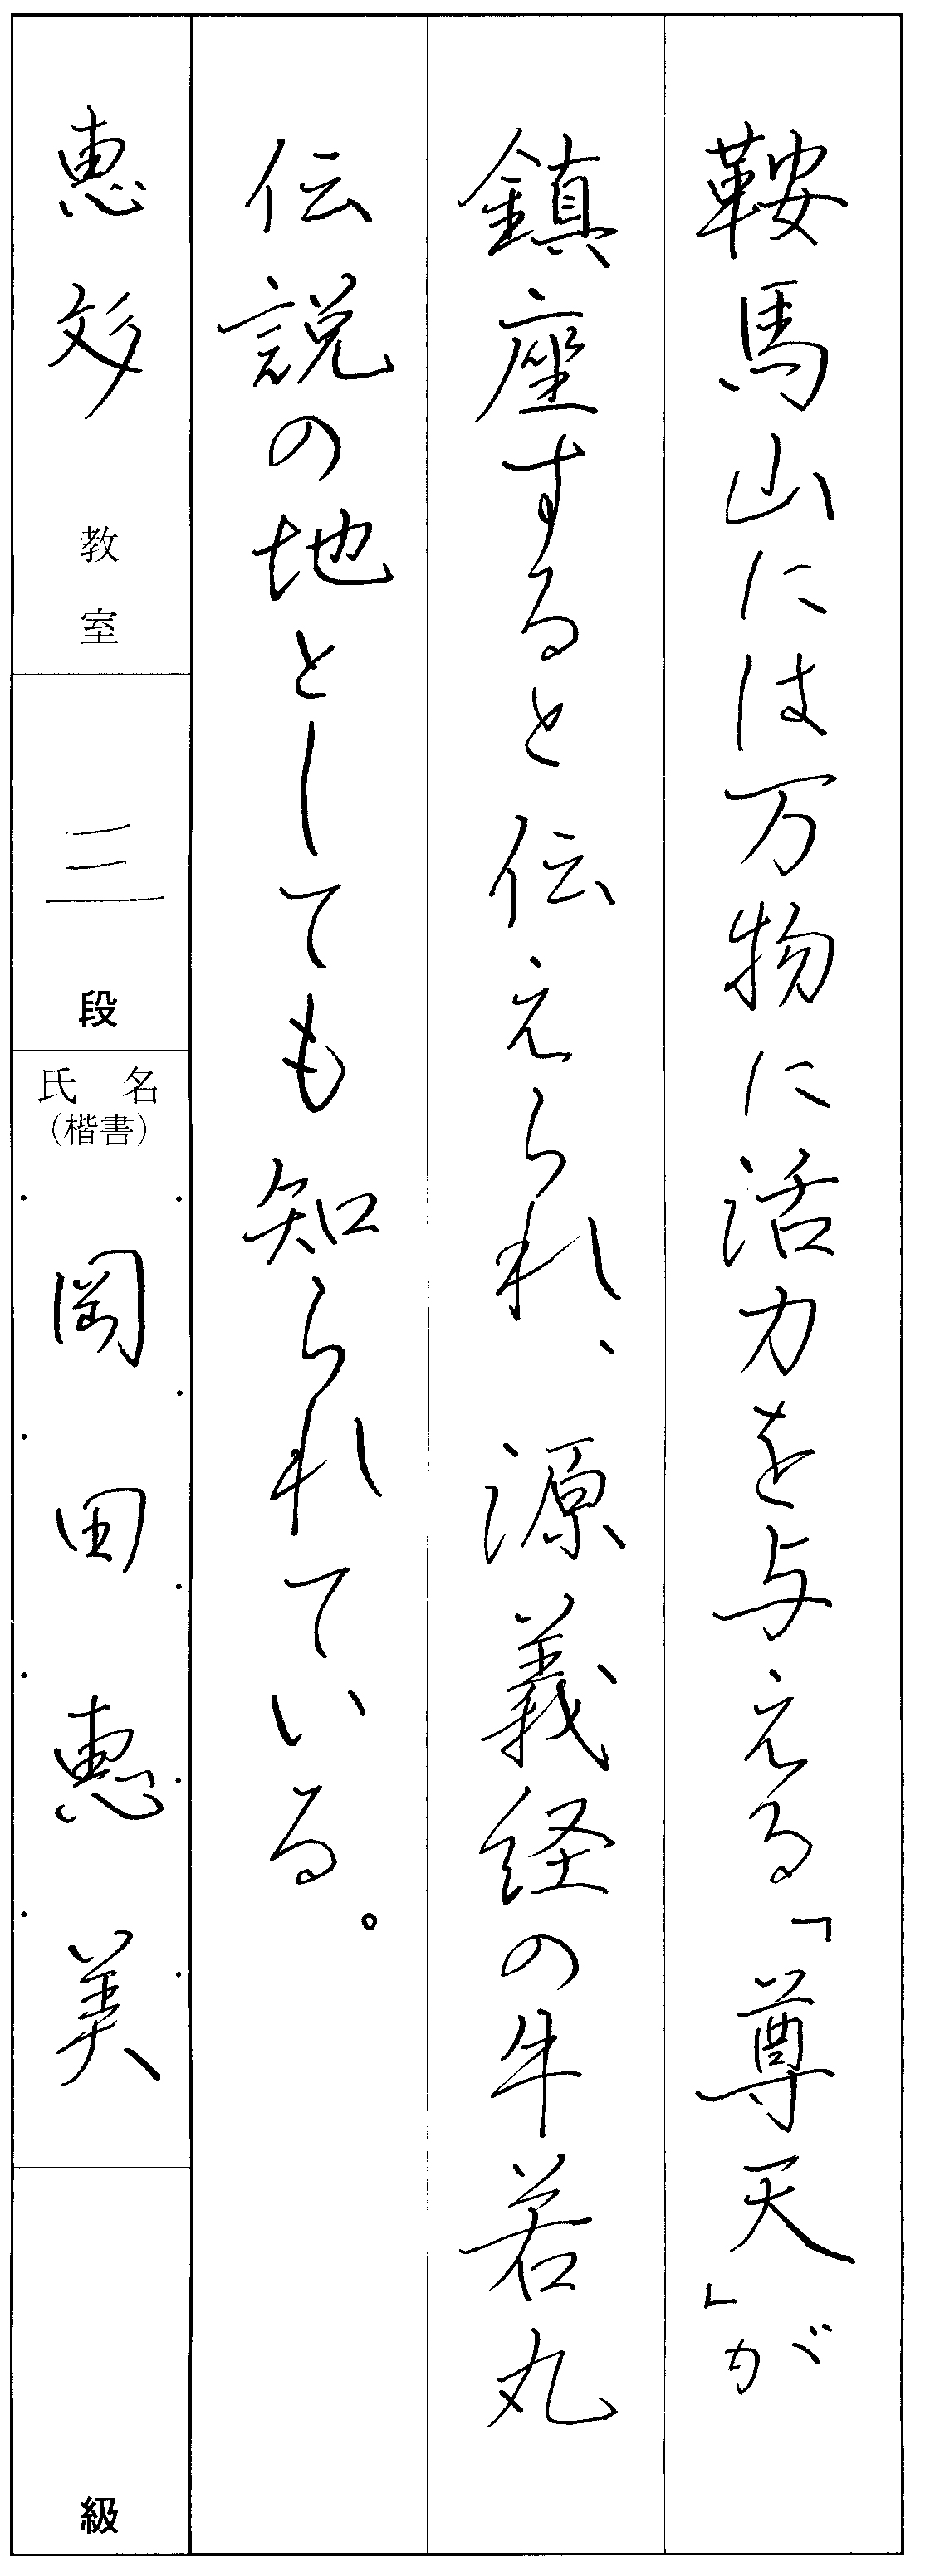 鞍馬山には万物に活力を与える「尊天」が
鎮座すると伝えられ、源義経の牛若丸
伝説の地としても知られている。
恵彣教室
三段
氏名
（楷書）
岡田恵美
級